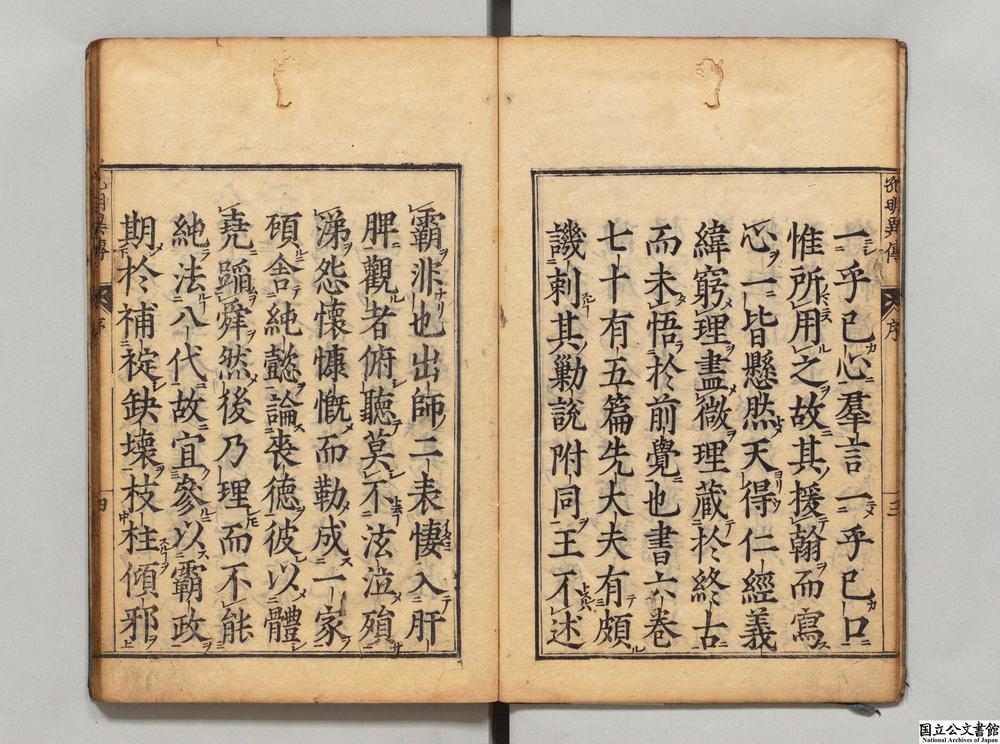 一乎已心羣言一乎已口
惟所用之故其援翰而寫
心一皆懸然天得仁經義
緯窮理盡微理蔵於終古
而未悟於前覺也書六卷
七十有五篇先大夫有頗
譏刺其勦說附同王不述
孔明異傳
序
三
霸非也出師二表悽入肝
脾觀者俯聽莫不泫泣殞
涕怨懷慷慨而勒成一家
碩舎純懿論喪德彼以體
堯蹈舜然後乃理而不能
純法八代故宜參以霸政
期於補䘺缺壊枝柱傾邪
序
四
国立公文書館
National Archives of Japan